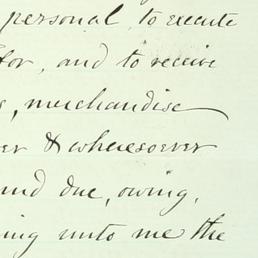 personal, to execute
for, and to receive
s, merchandise
er & wheresoever
und due, owing,
ing unto me the